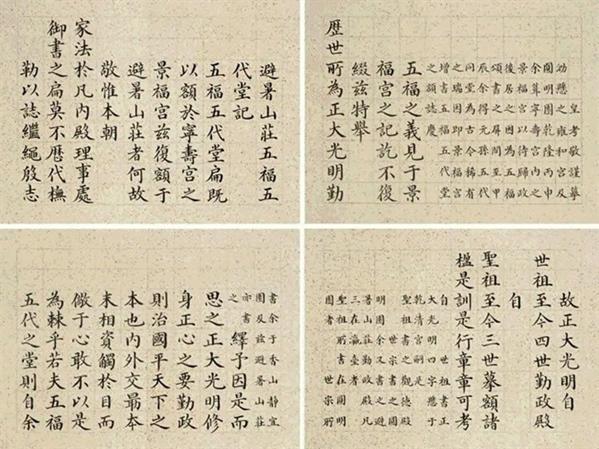 避暑山莊五福五
代堂記
五福五代堂扁既
以額於寧壽宮之
景福宮茲復額于
避暑山莊者何故
敬惟本朝
家法於凡内殿理事處
御書之扁莫不歷代橅
勒以誌繼繩殷志
皇考敬謹摹
効懸之雍和宮及
圓明園乾隆丙申
余葺寧壽宮内之
景福宮以待歸政
後居之因為五福
頌書之屏間至甲
辰余得元孫五代
同堂為古今稀有
之瑞因即景福宮
增書五福五代堂
之額誌慶
五福之義見于景
福宮之記訖不復
綴茲特舉
歷世所為正大光明勤
故正大光明自
世祖至今四世勤政殿
自
聖祖至今三世摹額諸
楹是訓是行章章可考
自 世祖書正
大光明四字懸于
乾清宮嗣是
聖祖書之觀德
殿 世宗書之圓
明園余又書之避
暑山莊勤政殿凡
三在瀛臺者
聖祖所書在圓明
園者 世宗所
書余于香山靜宜
園及茲避暑山莊
亦書之
繹予因是而
思之正大光明修
身正心之要勤政
則治國平天下之
本也内外交最本
末相資觸於目而
儆于心敢不以是
為棘乎若夫五福
五代之堂則自余